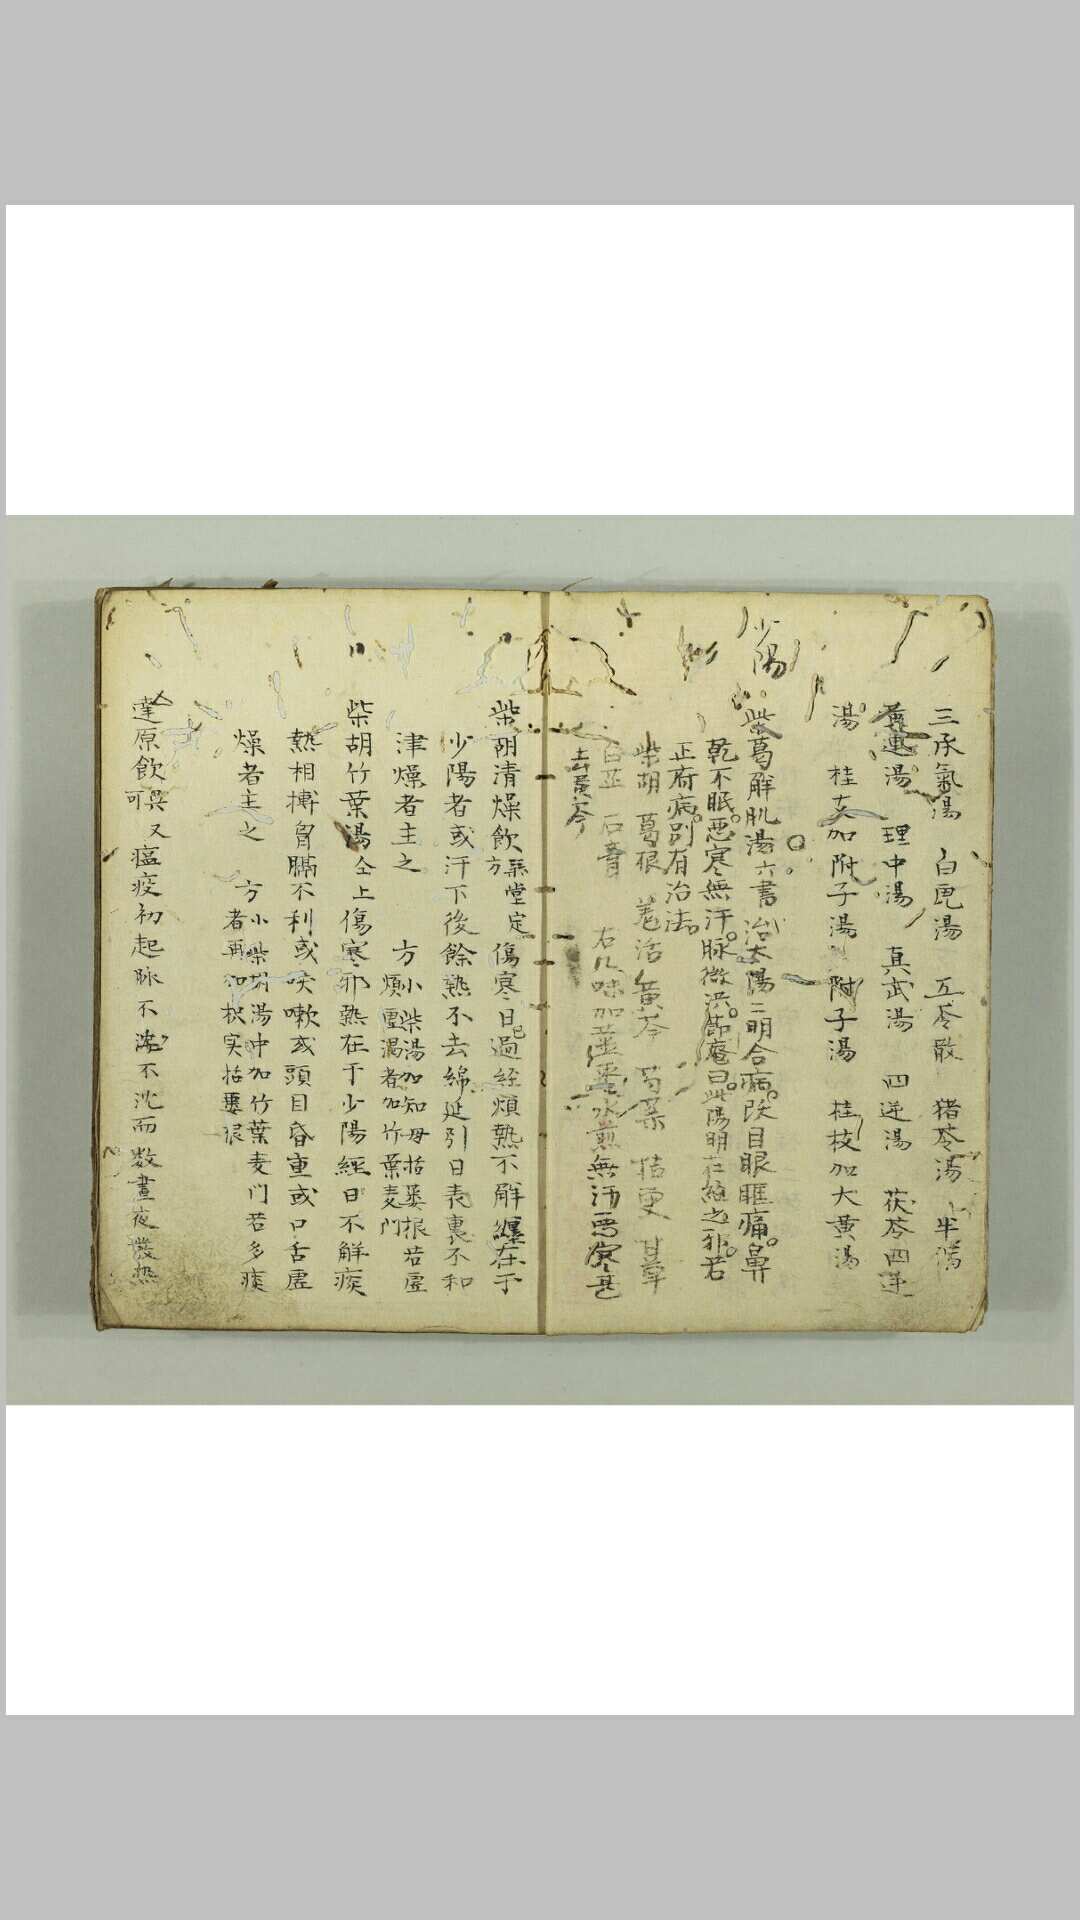 三承氣湯 白虎湯 五苓散 猪苓湯 半瀉
連湯 理中湯 真武湯 四逆湯 茯苓四逆
湯 桂支加附子湯 附子湯 桂枝加大黄湯
少陽
柴葛解肌湯六書治太陽二明合病 目眼眶痛鼻
乾不眠悪寒無汗脉微洪節菴曰此陽明在經之邪若
正府病別有治法
柴胡 葛根 羌活 黄芩 芍薬 桔更 甘草
白芷 石膏 右 味加薑 水煎無汗悪寒甚
去黄芩
柴胡清燥飲 方 堂定 傷寒日 過経煩熱不解纏在于
少陽者或汗下後餘熱不去綿延引日表裏不和
津燥者主之 方 小柴湯加知母括蔞根若虚
煩 渇者加竹葉麦門
柴胡竹葉湯仝上傷寒邪熱在于少陽經日不解痰
熱相搏胷膈不利或咳嗽或頭目昏重或口舌虚
燥者主之 方 小柴胡湯中加竹葉麦門若多痰
者再加枳実括蔞根
達原飲 呉又可 瘟疫初起脉不 不沈而数晝夜發熱